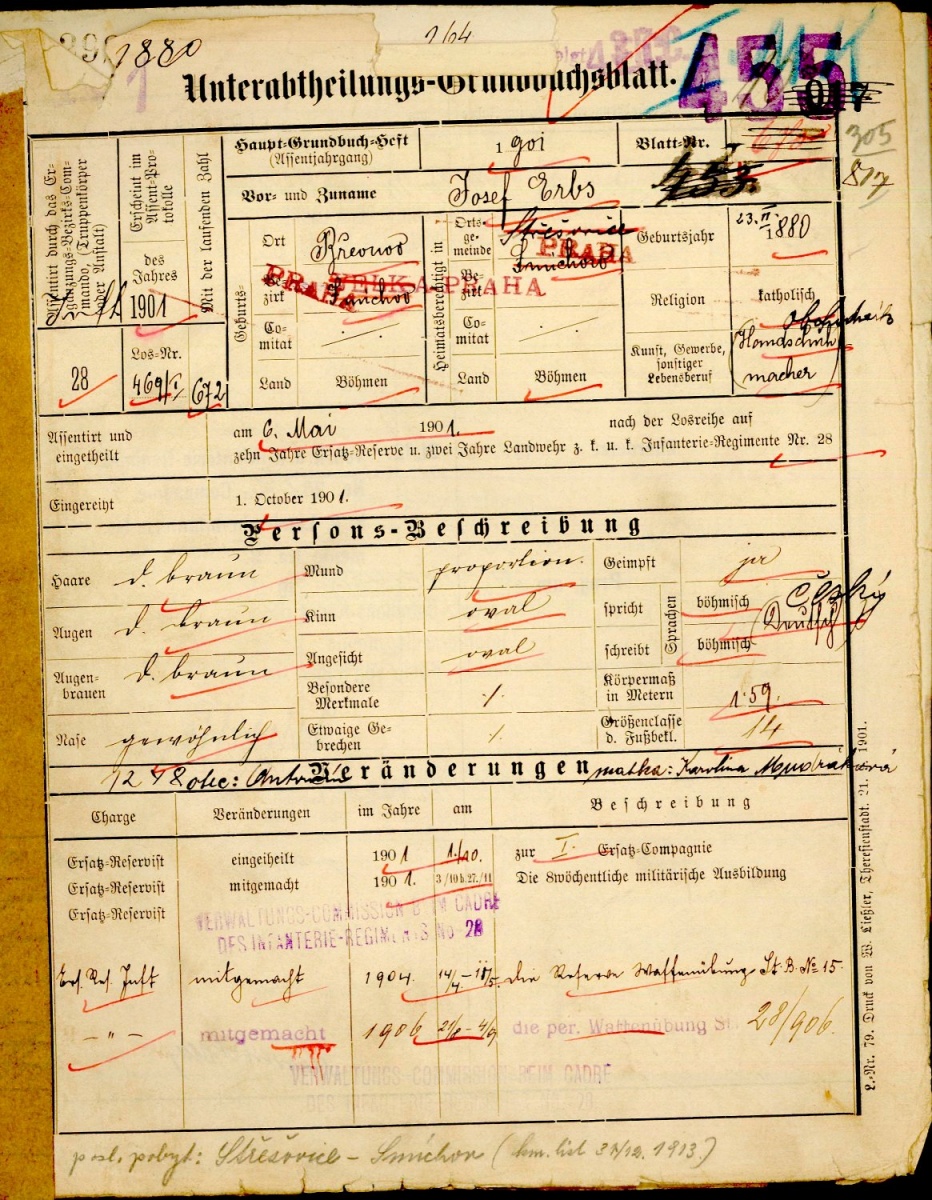 1880
1/64
Unterabtheilungs-Grundbuchsblatt.
455
Assentirt durch das Ergänzungs-Bezirks-Commando, (Truppenkörper oder Anstalt)
Erscheint im Assent-Protokolle
des Jahres
1901
Mit der laufenden Zahl
28
Los-Nr.
469/I
672
Haupt-Grundbuch-Heft
(Assentjahrgang)
1901
Blatt-Nr.
305
817
Vor- und Zuname
Josef Erbs
453.
Geburts-
Ort
Břevnov
Bezirk
Smíchov
PRAHA VELKÁ-PRAHA
Comitat
Land
Böhmen
Heimatsberechtigt in
Ortsgemeinde
Střešovice
PRAHA
Bezirk
Smíchov
Comitat
Land
Böhmen
Geburtsjahr
23. II. 1880
Religion
katholisch
Kunst, Gewerbe,
sonstiger
Lebensberuf
(Handschuh
macher)
Assentirt und
eingetheilt
am 6. Mai 1901. nach der Losreihe auf
zehn Jahre Ersatz-Reserve u. zwei Jahre Landwehr z. k. u. k. Infanterie-Regimente Nr. 28
Eingereiht
1. October 1901.
Persons-Beschreibung
Haare d. braun
Augen d. braun
Augenbrauen d. braun
Nase gewöhnlich
Mund proportion.
Kinn oval
Angesicht oval
Besondere
Merkmale ./.
Etwaige Gebrechen ./.
Geimpft ja
Sprachen
spricht böhmisch
český
(Deutsch)
schreibt böhmisch
Körpermaß
in Metern 1·59.
Größenclasse
d. Fußbekl. 14
otec: Antonín
Veränderungen
matka: Karolina Mudráková
Charge
Veränderungen
im Jahre
am
Beschreibung
Ersatz-Reservist eingetheilt 1901 1./10. zur I. Ersatz-Compagnie
Ersatz-Reservist mitgemacht 1901. 3/10 b. 27./11 Die 8wöchentliche militärische Ausbildung
Ersatz-Reservist
VERWALTUNGS-COMMISSION BEIM CADRE
DES INFANTERIE-REGIMENTS No 28
Ers. Res. Inft mitgemacht 1904. die Reserve Waffenübung St. B. No 15.
– " – mitgemacht 1906 die per. Waffenübung St. 28/906.
VERWALTUNGS COMMISSION BEIM CADRE
L.-Nr. 79. Druck von W. Ließler, Theresienstadt. 21. 1901.
posl. pobyt: Střešovice – Smíchov (km. list 31/12. 1913.)